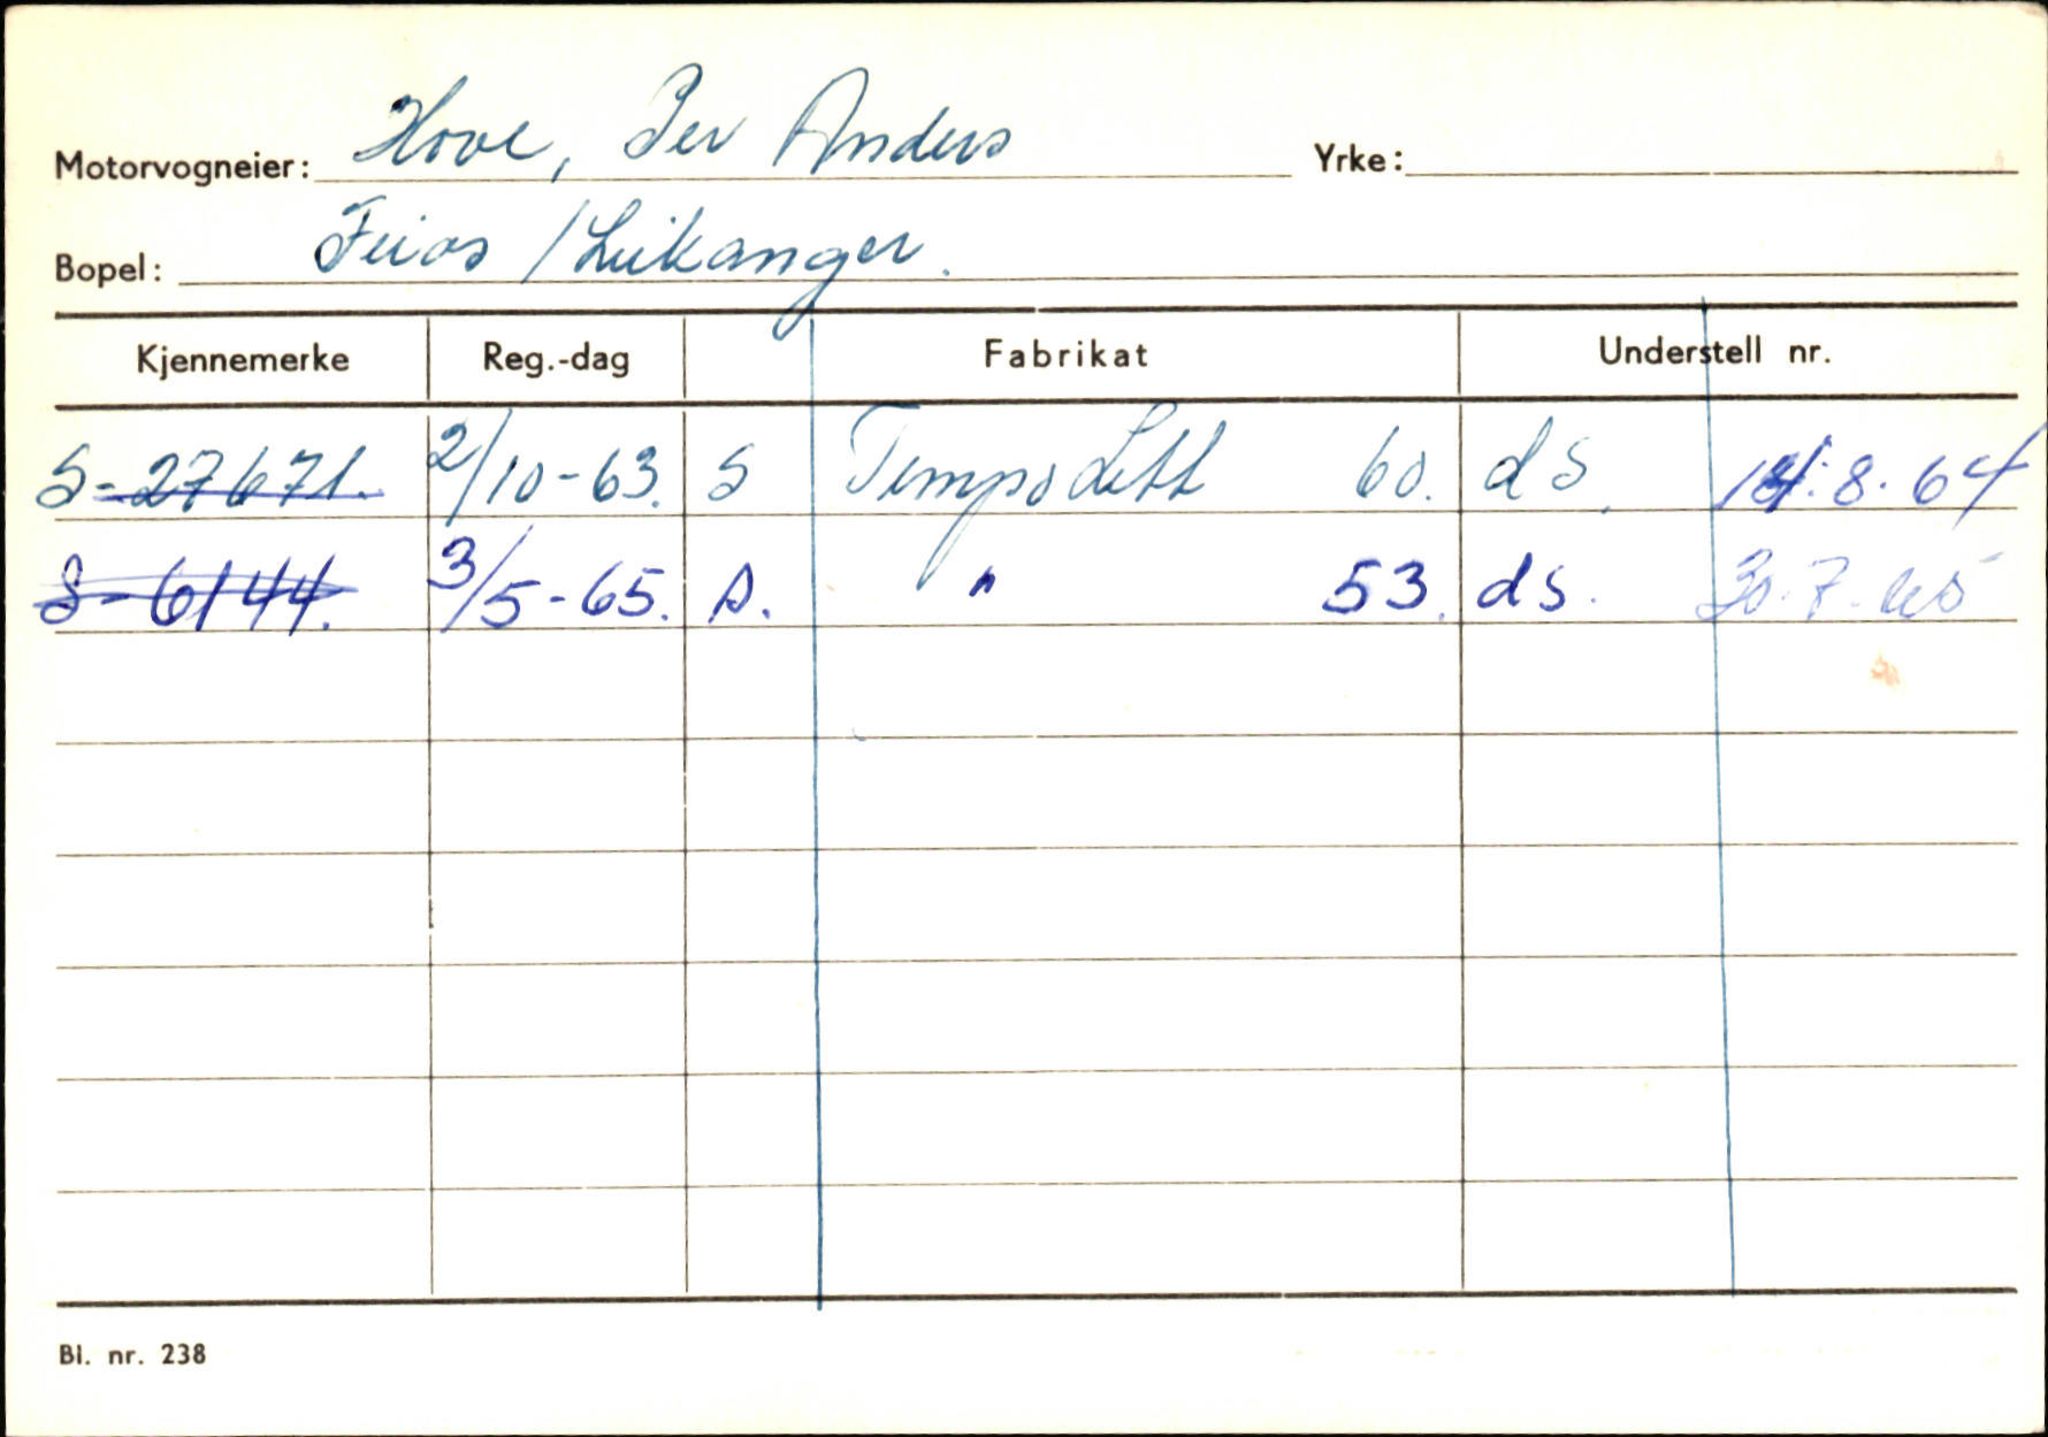 Motorvogneier: Hove, Per Anders Yrke:
Bopel: Feios / Leikanger.
Kjennemerke Reg.-dag Fabrikat Understell nr.
S-27671. 2/10-63. S Tempo Lett 60. ds. .8.64
S-6144. 3/5-65. S. " 53. ds. 30.7.65
Bl. nr. 238